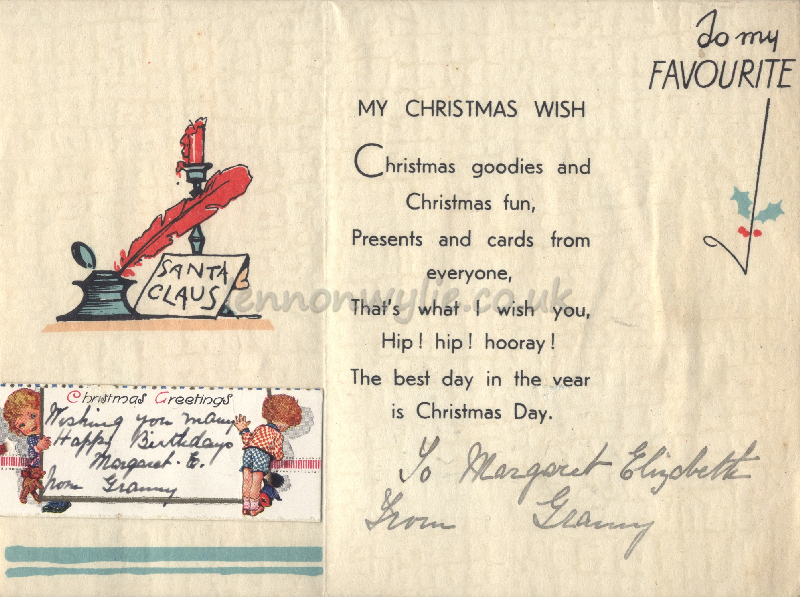 SANTA
CLAUS
Christmas Greetings
Wishing you many
Happy Birthdays
Margaret. E.
from Granny
To my
FAVOURITE
MY CHRISTMAS WISH
Christmas goodies and
Christmas fun,
Presents and cards from
everyone,
That's what I wish you,
Hip! hip! hooray!
The best day in the year
is Christmas Day.
To Margaret Elizabeth
From Granny
lennonwylie.co.uk